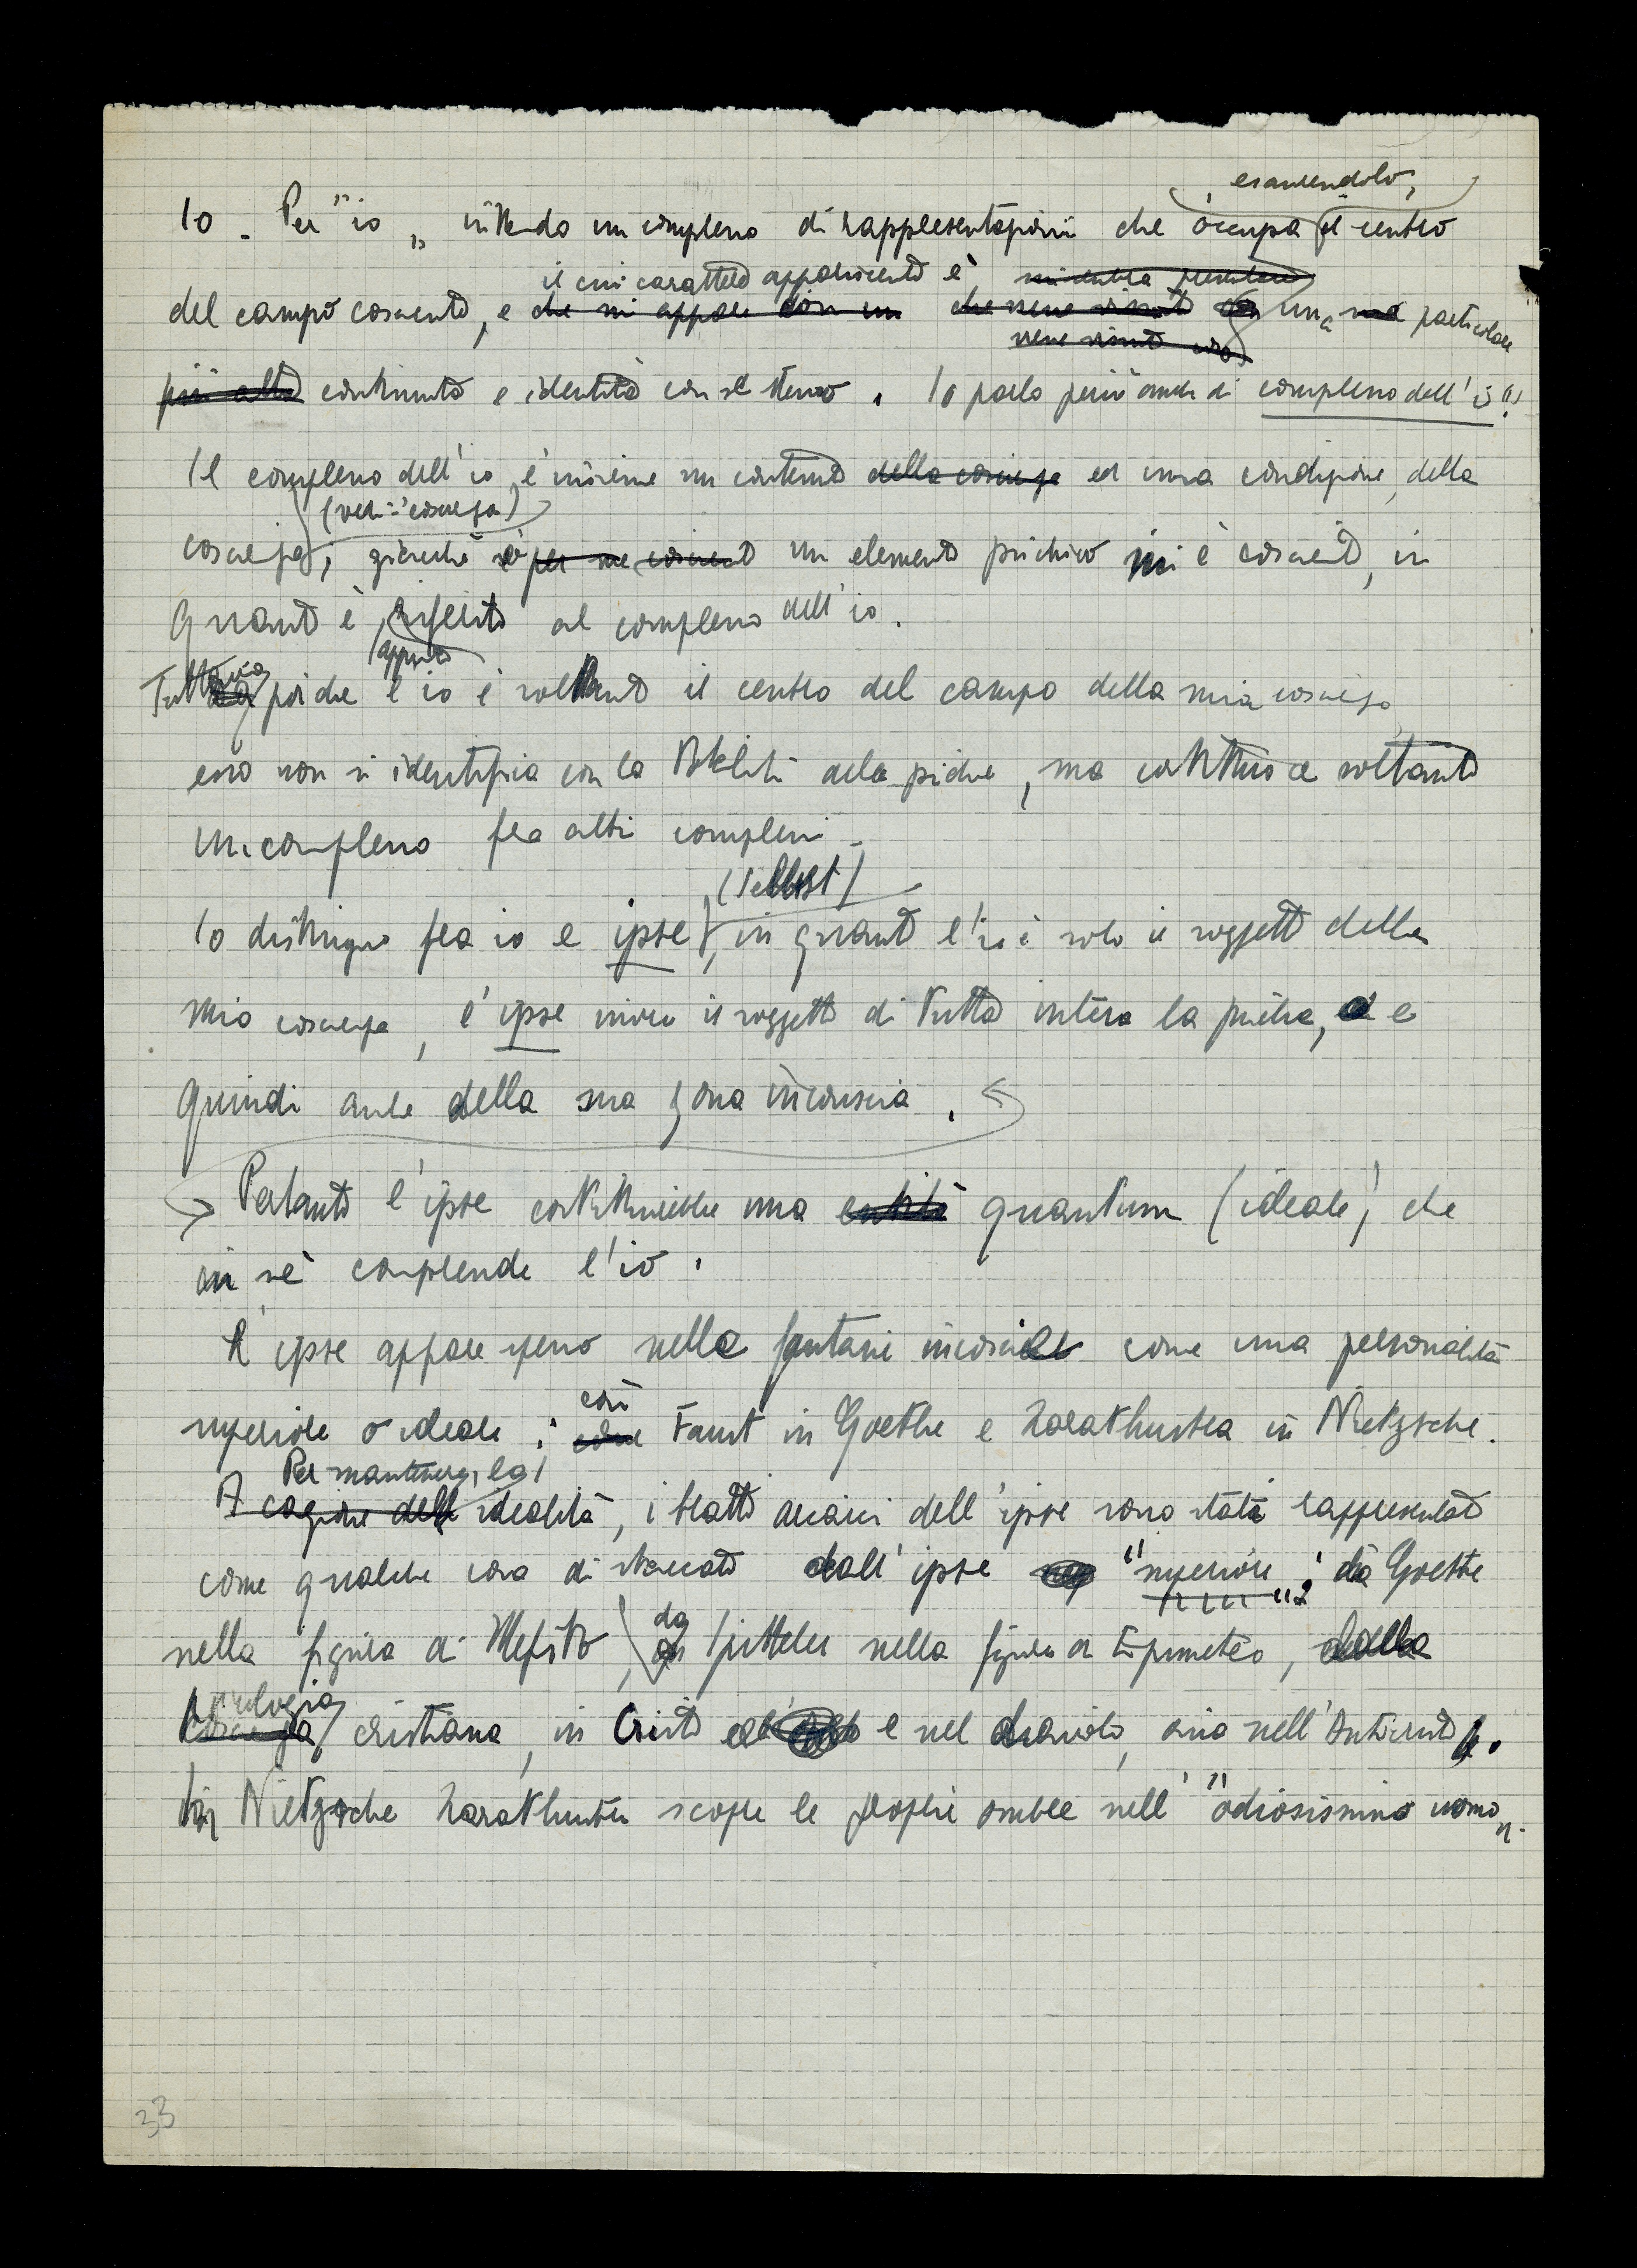 esaurendolo,
Io. Per "io„ intendo un complesso di rappresentazioni che occupa il centro
il cui carattere appariscente è,
del campo cosciente, e che mi appare con un che viene vissuto una particolare
viene vissuto
più alta continuità e identità con sé stesso. Io parlo perciò anche di complesso dell'io.
Il complesso dell'io è insieme un contenuto della coscienza ed una condizione della
(vedi: "coscienza)
coscienza, giacché per me cosciente un elemento psichico mi è cosciente, in
quanto è riferito al complesso dell'io.
appunto
Tuttavia poiche l'io è soltanto il centro del campo della mia coscienza,
esso non si identifica con la totalità della psiche, ma costituisce soltanto
un complesso fra altri complessi.
(Selbst)
Io distinguo fra io e ipse, in quanto l'io è solo il soggetto della
mia coscienza, l'ipse invece il soggetto di tutta intera la psiche, e
quindi anche della sua zona inconscia.
Pertanto l'ipse costituirebbe una entità quantum (ideale) che
in sé comprende l'io.
L'ipse appare spesso nelle fantasie inconscie come una personalità
così
superiore o ideale: come Faust in Goethe e Zarathustra in Nietzsche.
Per mantenere la
A cagione dell idealità, i tratti arcaici dell'ipse sono stati rappresentati
come qualche cosa di staccato dall'ipse "superiore„: da Goethe
da
nella figura di Mefisto, Spitteler nella figura di Epimeteo, dalla
psicologia
coscienza cristiana, in Cristo e nel diavolo, ossia nell'Anticristo.
In Nietzsche Zarathustra scopre le proprie ombre nell' "odiosissimo uomo„.
33